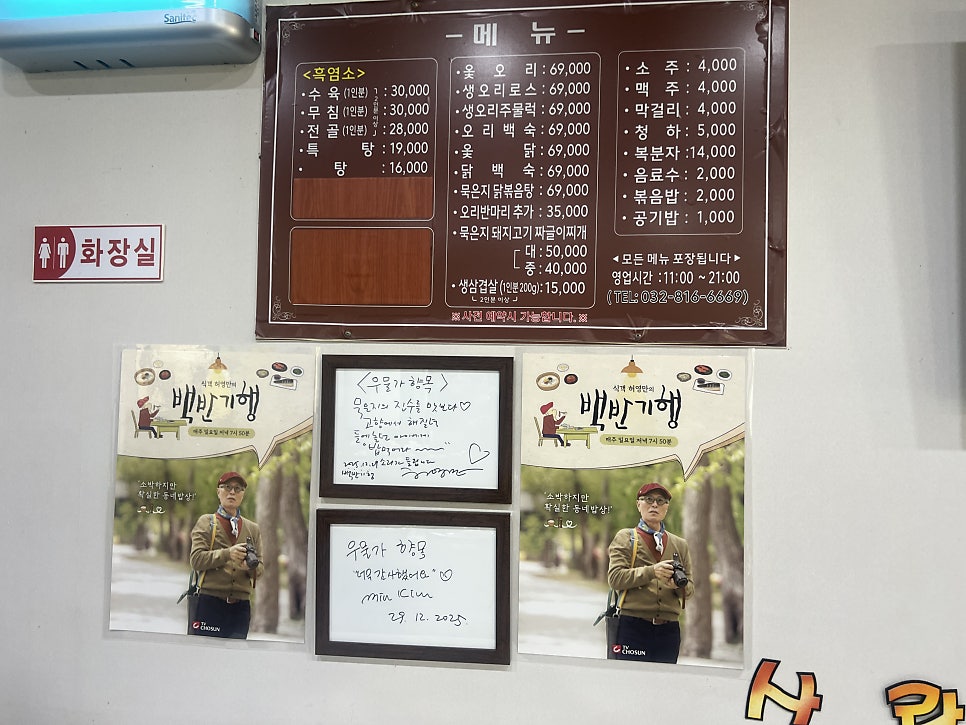 Sanitec
- 메 뉴 -
<흑염소>
· 수 육 (1인분) : 30,000
· 무 침 (1인분) : 30,000
· 전 골 (1인분) : 28,000
2인분 이상
· 특 탕 : 19,000
· 탕 : 16,000
· 옻 오 리 : 69,000
· 생오리로스 : 69,000
· 생오리주물럭 : 69,000
· 오 리 백 숙 : 69,000
· 옻 닭 : 69,000
· 닭 백 숙 : 69,000
· 묵은지 닭볶음탕 : 69,000
· 오리반마리 추가 : 35,000
· 묵은지 돼지고기 짜글이찌개
대 : 50,000
중 : 40,000
· 생삼겹살 (1인분 200g) : 15,000
2인분 이상
※ 사전 예약시 가능합니다. ※
· 소 주 : 4,000
· 맥 주 : 4,000
· 막걸리 : 4,000
· 청 하 : 5,000
· 복분자 : 14,000
· 음료수 : 2,000
· 볶음밥 : 2,000
· 공기밥 : 1,000
◀ 모든 메뉴 포장됩니다 ▶
영업시간 : 11:00 ~ 21:00
(TEL: 032-816-6669)
화장실
식객 허영만의
백반기행
매주 일요일 저녁 7시 50분
"소박하지만
확실한 동네밥상!"
TV
CHOSUN
<우물가 향목>
묵은지의 진수를 맛보다♡
고향에서 해질녘
들에 놀던 아이에게
밥먹어라 ~~"
소리가 들립니다
백반기행
우물가 향목
"너무 감사했어요" ♡
Min Kim
29. 12. 2025
식객 허영만의
백반기행
매주 일요일 저녁 7시 50분
"소박하지만
확실한 동네밥상!"
TV
CHOSUN